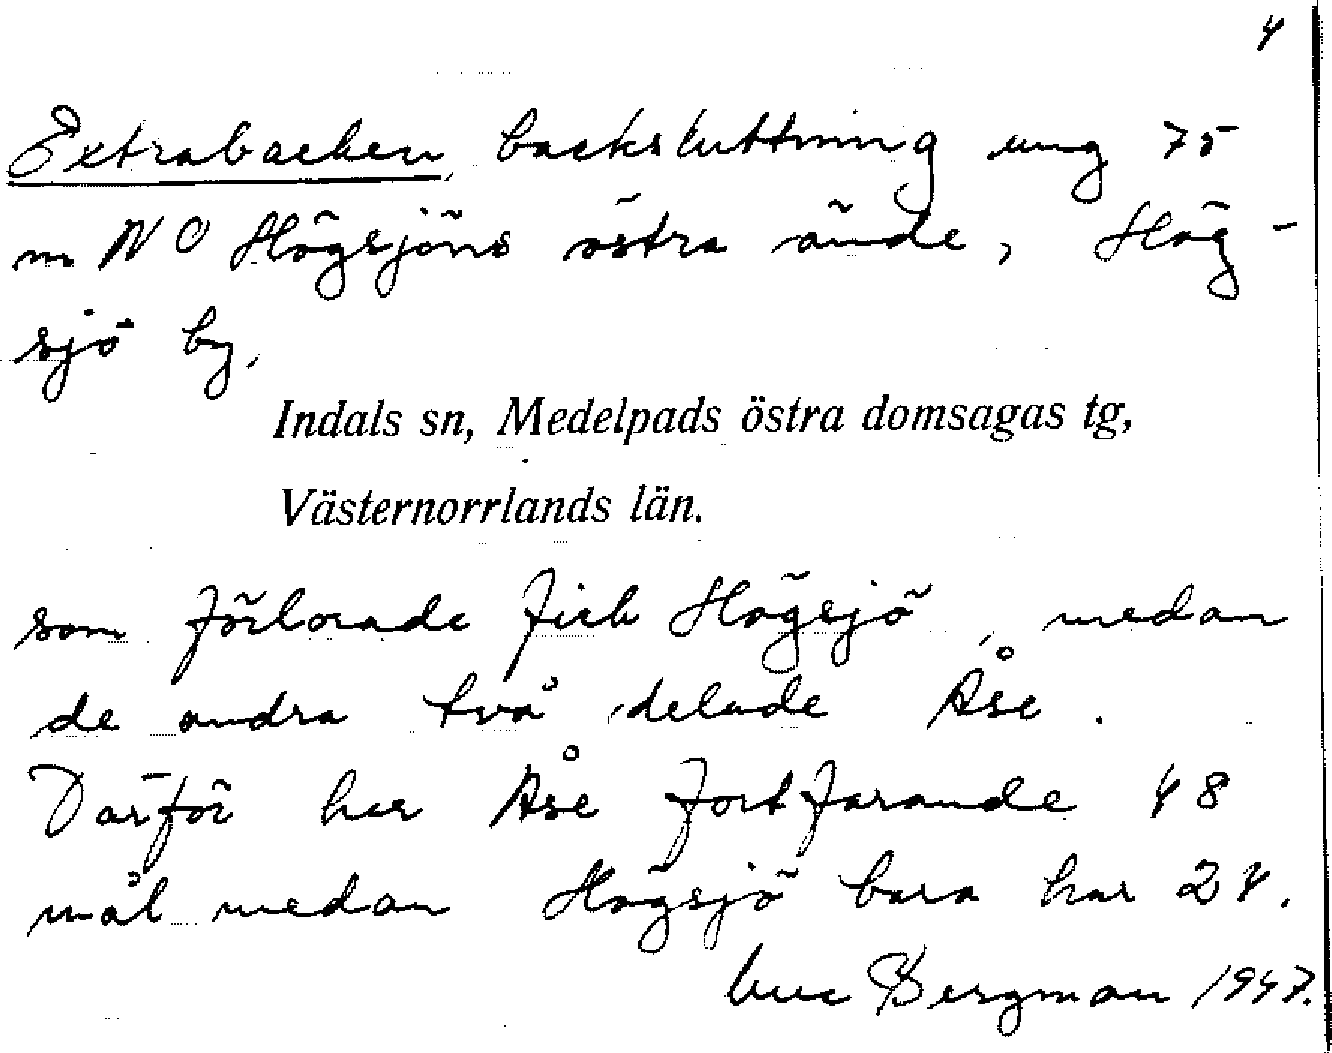 4
Extrabacken, backsluttning ung 75
m NO Högsjöns östra ände, Hög-
sjö by.
Indals sn, Medelpads östra domsagas tg,
Västernorrlands län.
som förlorade fick Högsjö, medan
de andra två delade Åse.
Därför har Åse fortfarande 48
mål medan Högsjö bara har 24.
Bergman 1947.